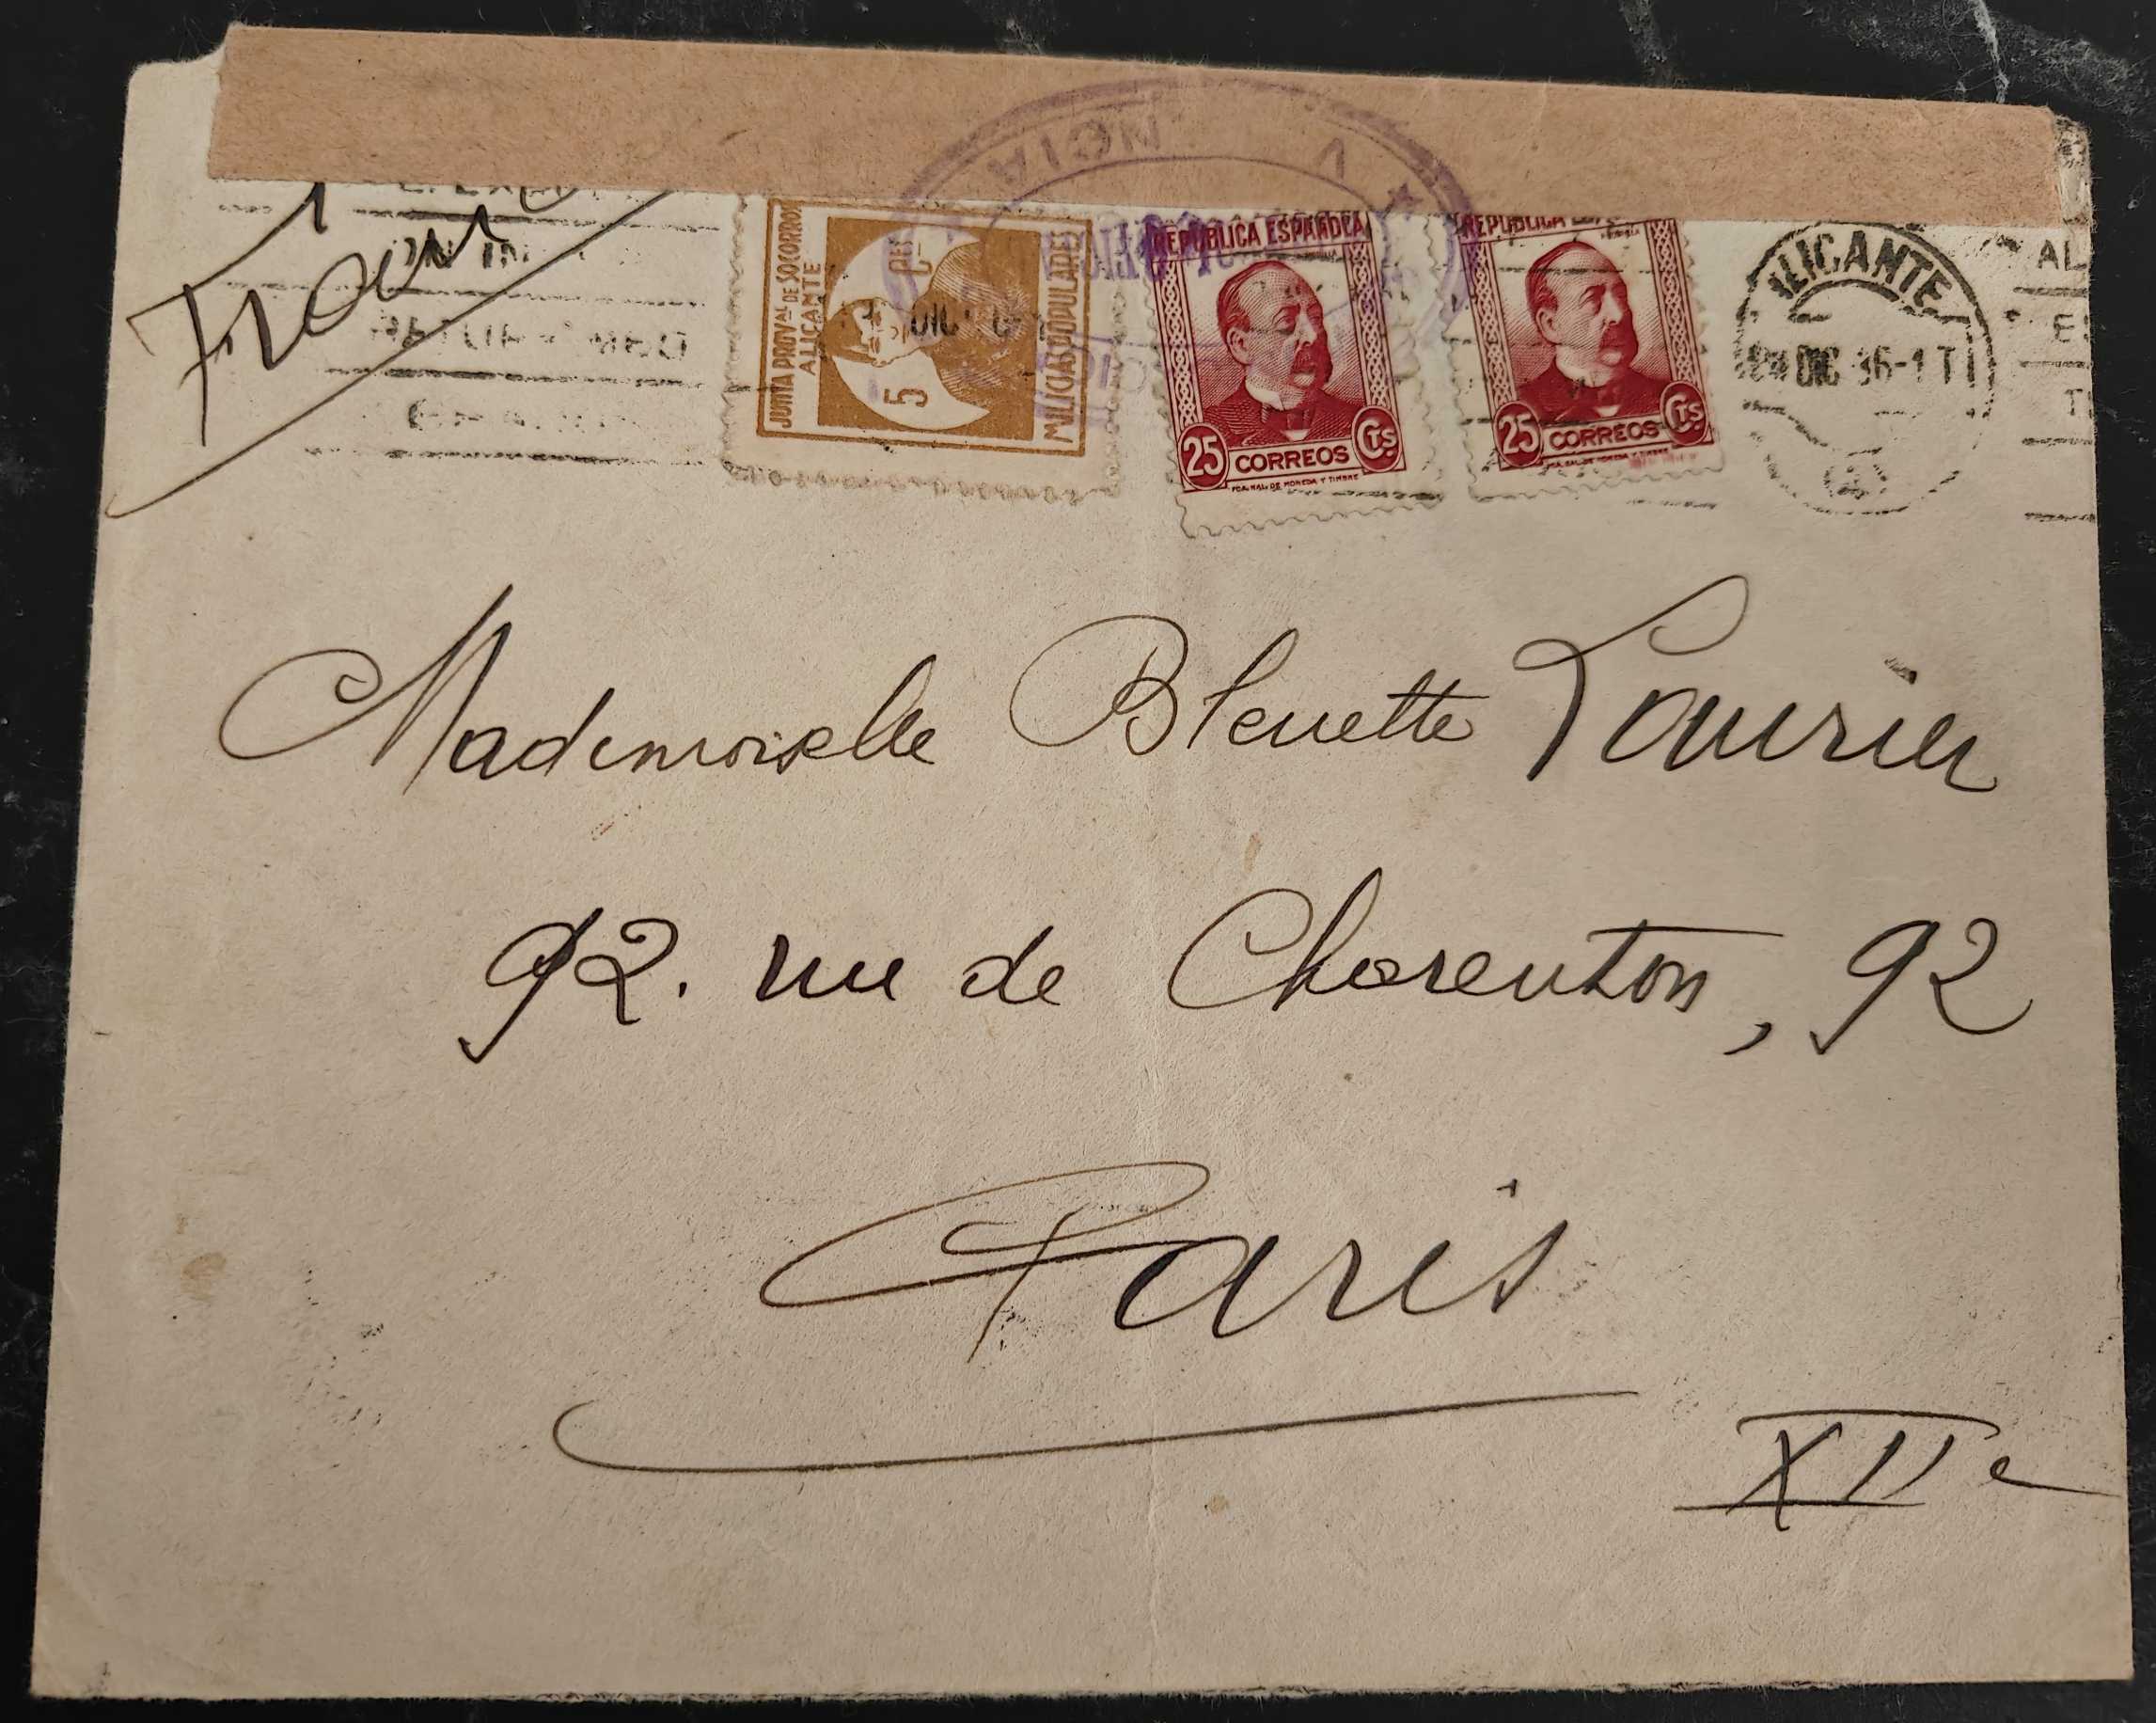 JUNTA PROVAL DE SOCORROS
ALICANTE
5
MILICIAS POPULARES
REPUBLICA ESPAÑOLA
25 CORREOS CTS
FCA. NAL. DE MONEDA Y TIMBRE
REPUBLICA
25 CORREOS CTS
FCA. NAL. DE MONEDA Y TIMBRE
ALICANTE
DIC 36-1T
AL
Mademoiselle Bleuette Laurier
92. rue de Charenton, 92
Paris
XIIe